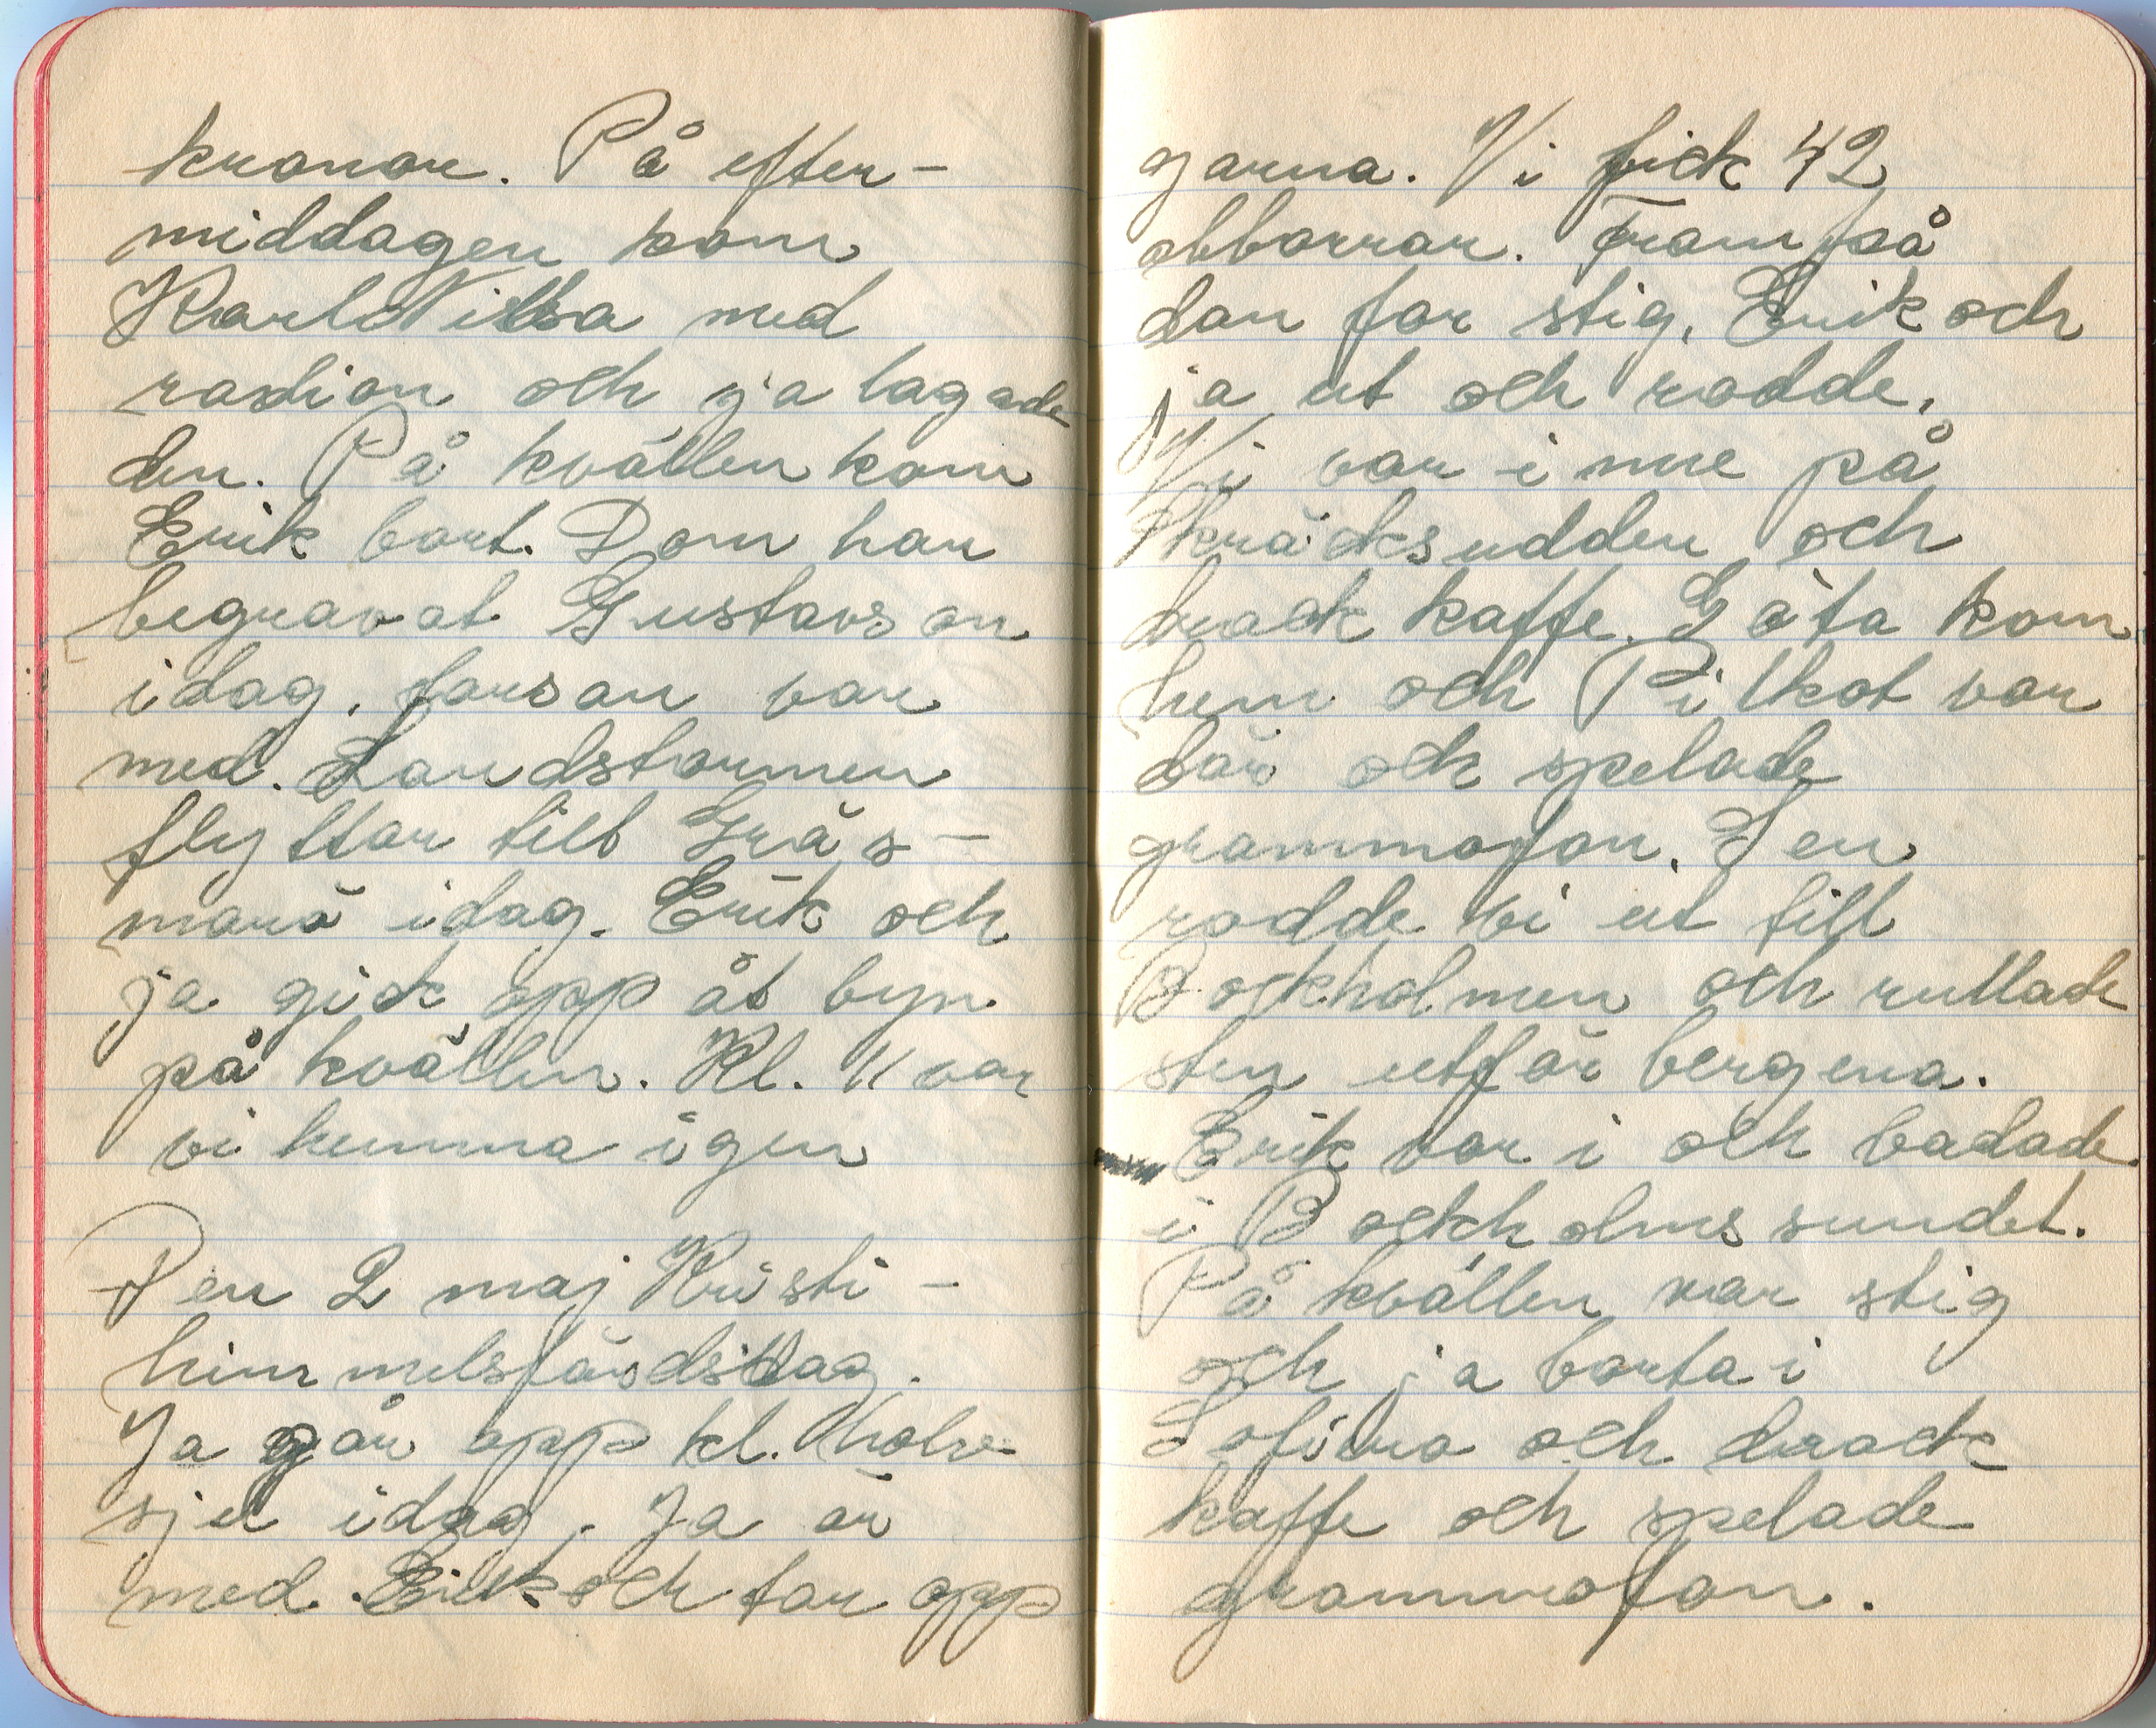 kronor. På efter-
middagen kom
Karl Nilsa med
radion och ja lagade
den. På kvällen kom
Erik bort. Dom har
begravat Gustavson
idag. farsan var
med. Landstormen
flyttar till Gräs-
marö idag. Erik och
ja gick opp åt byn
på kvällen. Kl. 11 var
vi hemma igen
Den 2 maj Kristi-
himmelsfärdsdag.
Ja går opp kl. halv
sju idag. Ja är
med Erik och tar opp
garna. Vi fick 42
abborrar. Fram på
dan far stig, Erik och
ja ut och rodde.
Vi var inne på
Skräcksudden och
drack kaffe. Göta kom
hem och Pilkot var
där och spelade
grammofon. Sen
rodde vi ut till
Bockholmen och rullade
sten utför bergena.
Erik var i och badade
i Bockholmssundet.
På kvällen var stig
och ja borta i
Sofiero och drack
kaffe och spelade
grammofon.